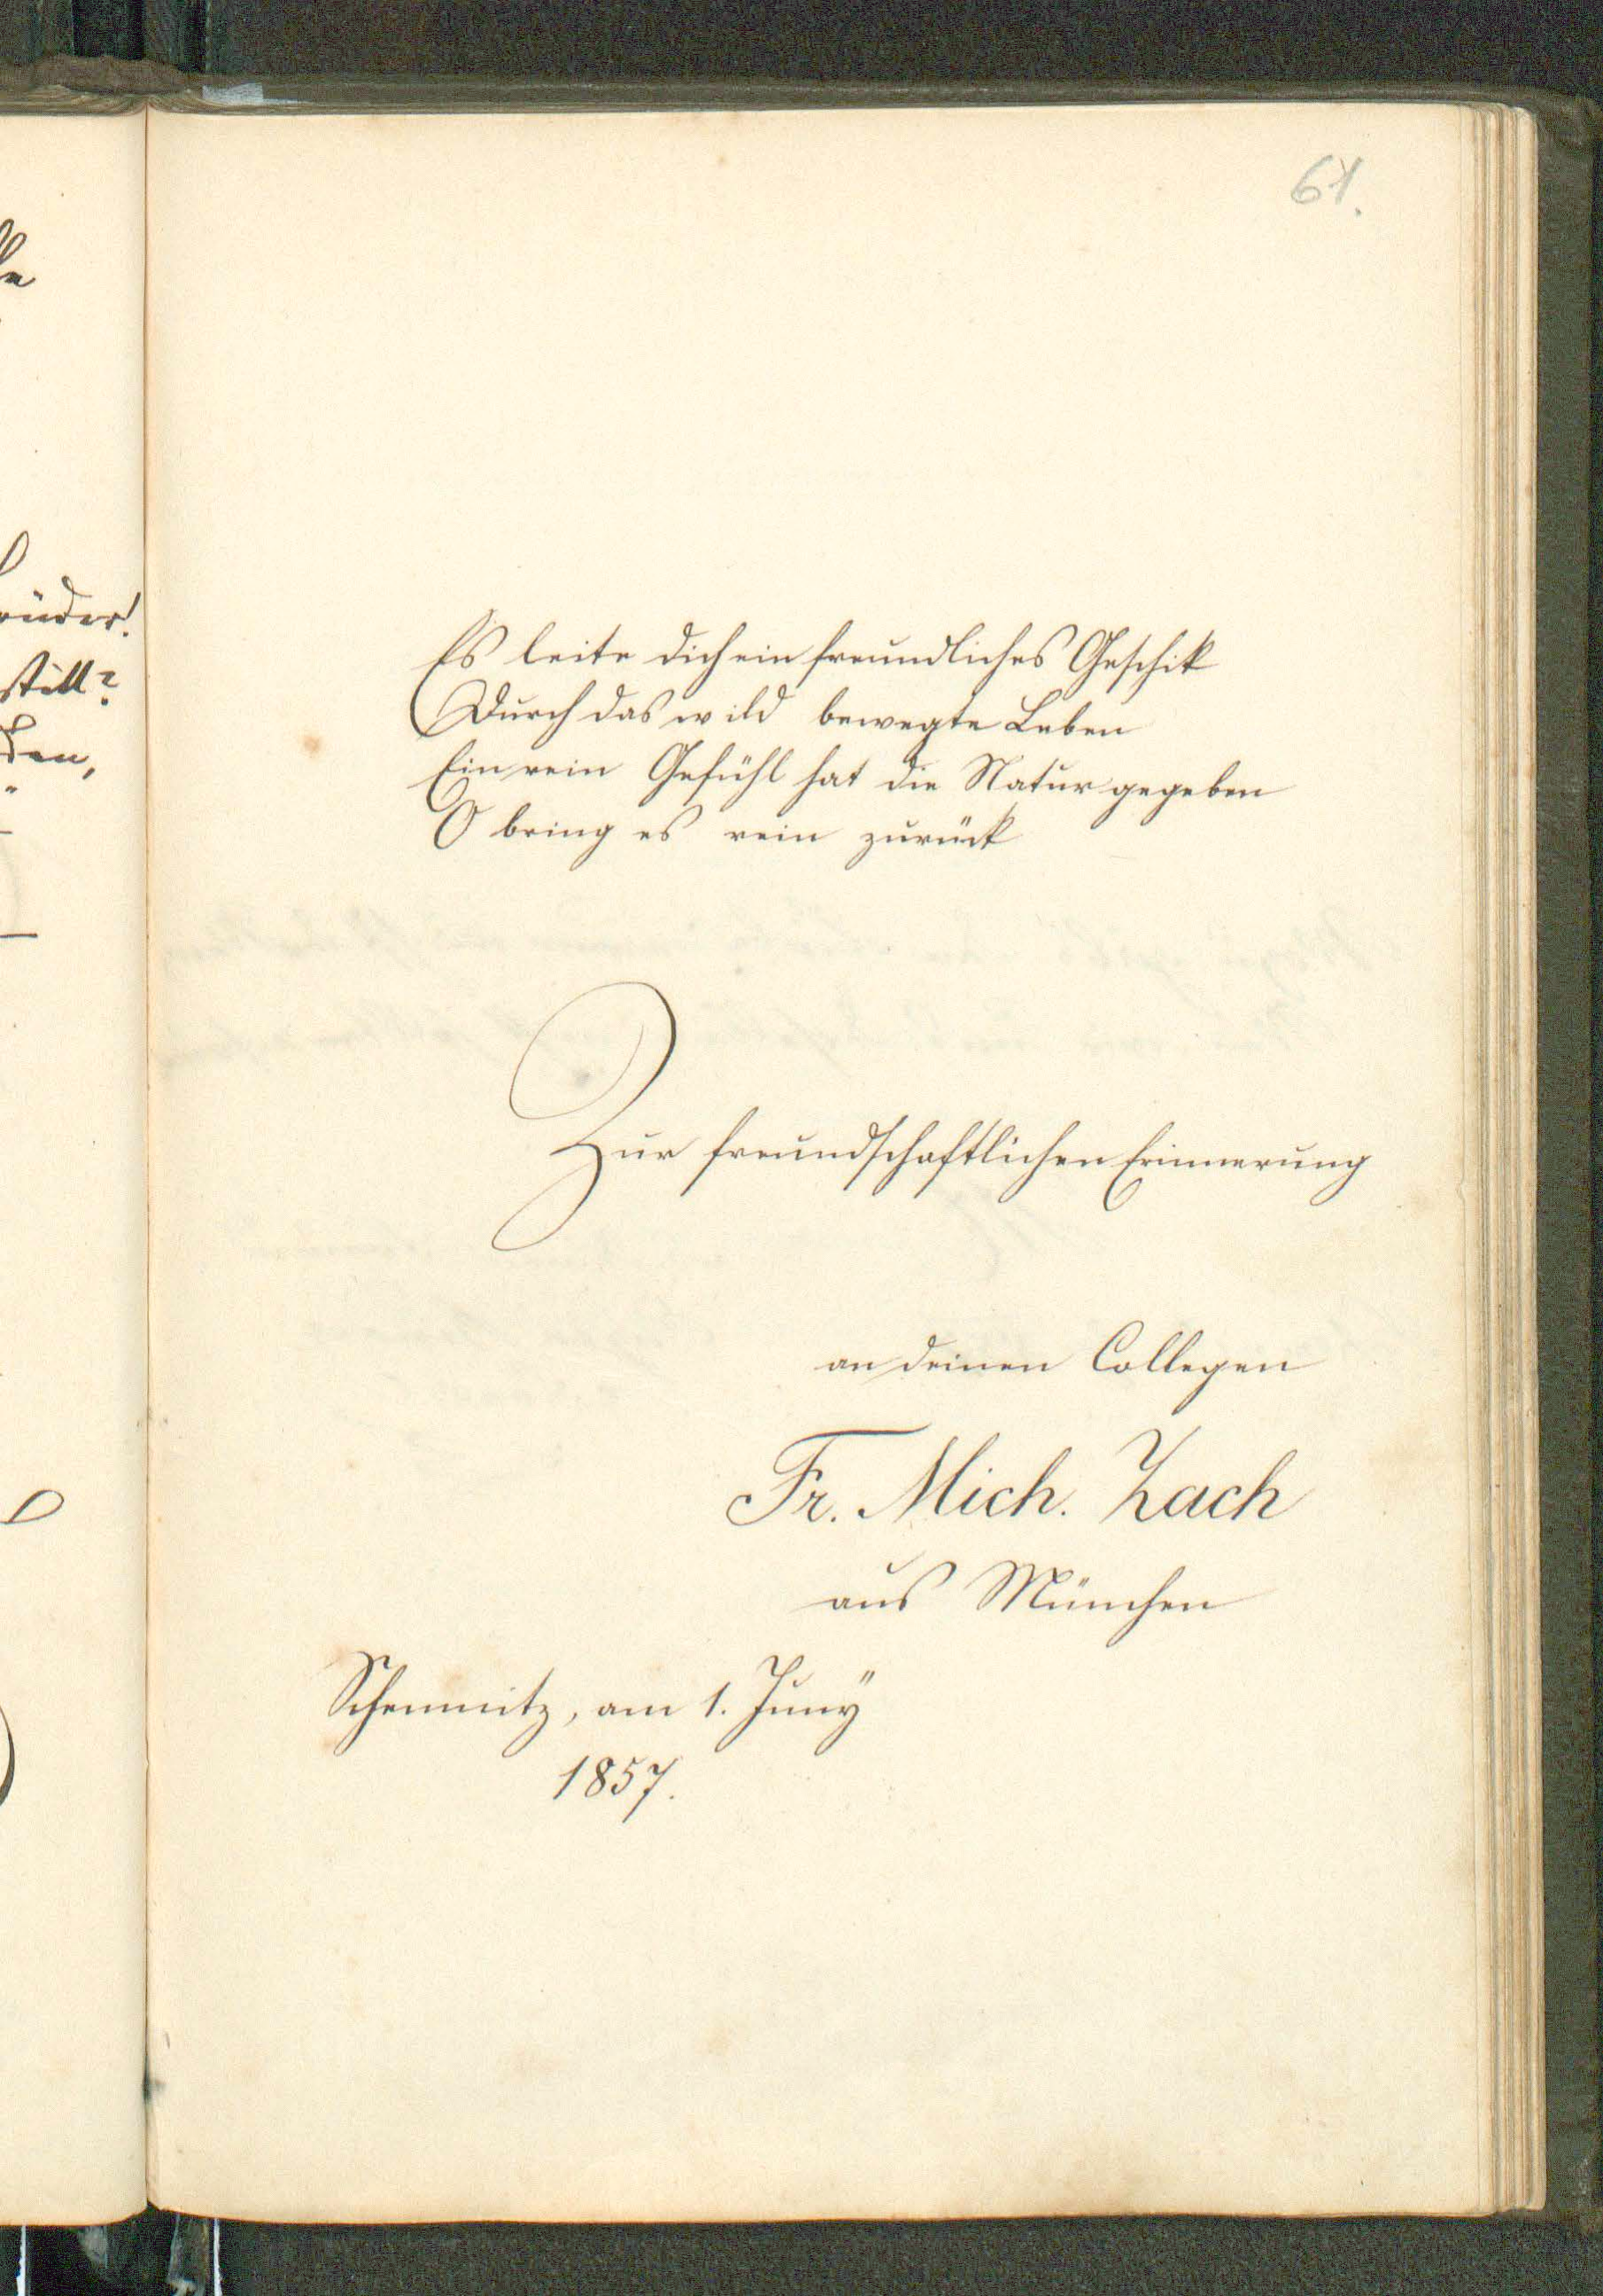 61.
üder!
still?
den,
Es leite dich ein freundliches Geschik
Durch das wild bewegte Leben
Ein rein Gefühl hat die Natur gegeben
O bring es rein zurück
Zur freundschaftlichen Erinnerung
an deinen Collegen
Fr. Mich. Zach
aus München
Schemnitz, am 1. Juny
1857.